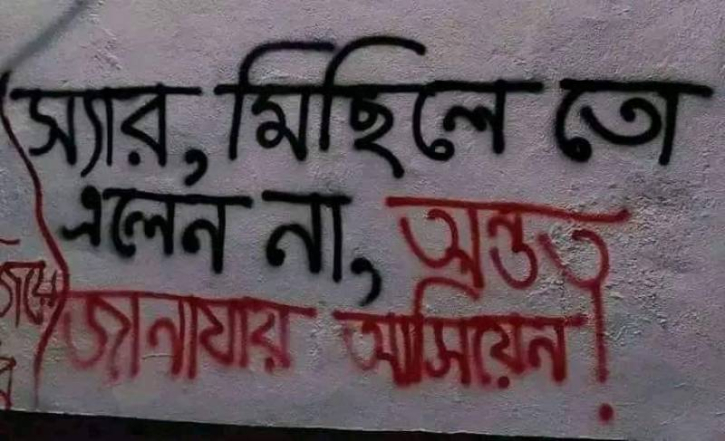 স্যার, মিছিলে তো
এলেন না, অন্তত
জানাযায় আসিয়েন!